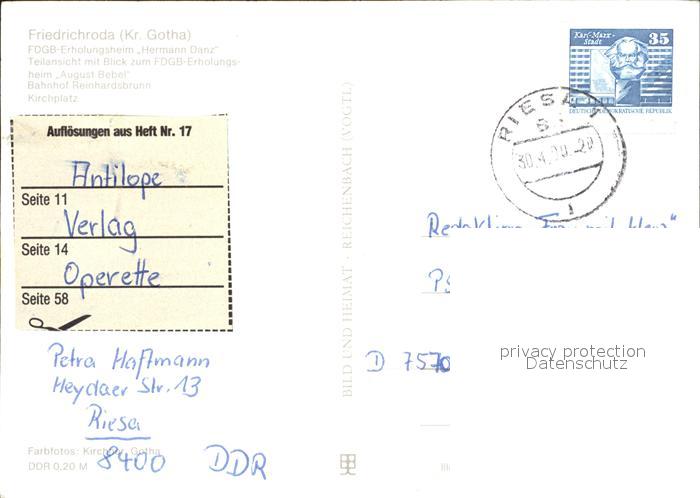 Friedrichroda (Kr. Gotha)
FDGB-Erholungsheim „Hermann Danz"
Teilansicht mit Blick zum FDGB-Erholungs-
heim „August Bebel"
Bahnhof Reinhardsbrunn
Kirchplatz
Auflösungen aus Heft Nr. 17
Antilope
Seite 11
Verlag
Seite 14
Operette
Seite 58
Petra Haftmann
Heydaer Str. 13
Riesa
8400 DDR
Farbfotos: Gotha
DDR 0,20 M
BILD UND HEIMAT · REICHENBACH (VOGTL)
Karl-Marx-
Stadt
35
DEUTSCHE DEMOKRATISCHE REPUBLIK
RIESA 1
30.4.90
Redaktion mit Herz"
D 7570
privacy protection
Datenschutz